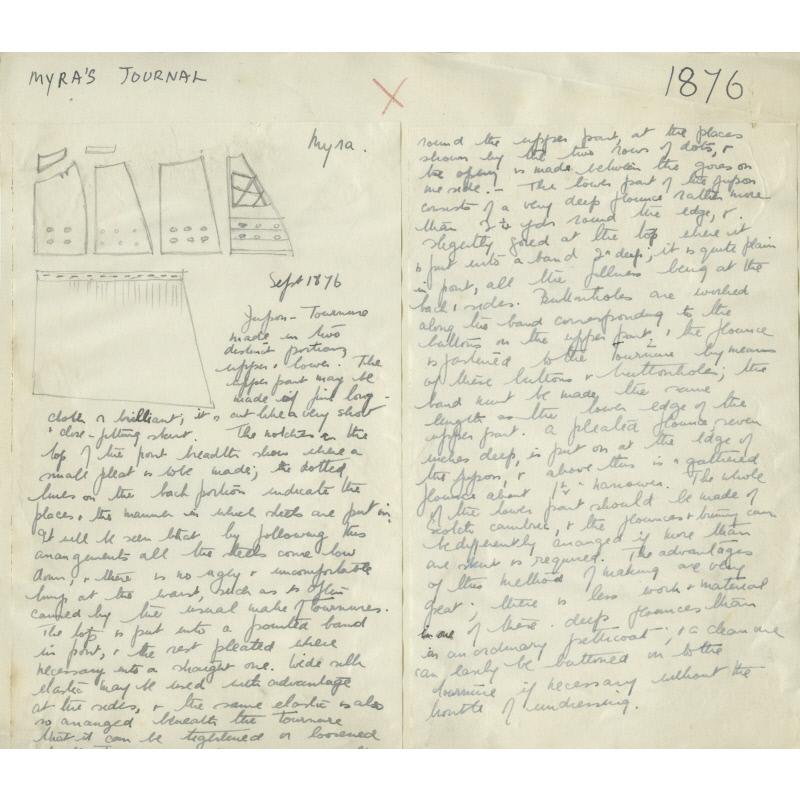 MYRA'S JOURNAL
1876
Myra.
Sept 1876
Jupon-Tournure
made in two
distinct portions,
upper & lower. The
upper part may be
made of fine long-
cloth or brilliant; it is cut like a very short
& close-fitting skirt. The notches on the
top of the front breadth show where a
small pleat is to be made; the dotted
lines on the back portion indicate the
places, & the manner in which steels are put in.
It will be seen that by following this
arrangements all the steels come low
down, & there is no ugly & uncomfortable
lump at the waist, such as is often
caused by the usual make of tournures.
The top is put into a pointed band
in front, & the rest pleated where
necessary into a straight one. Wide silk
elastic may be used with advantage
at the sides, & the same elastic is also
so arranged beneath the tournure
that it can be tightened or loosened
round the upper part, at the places
shown by the two rows of dots, &
the opening is made between the gores on
one side. - The lower part of the jupon
consists of a very deep flounce rather more
than 2½ yds round the edge, &
slightly gored at the top where it
is put into a band 2" deep; it is quite plain
in front, all the fullness being at the
back & sides. Buttonholes are worked
along the band corresponding to the
buttons on the upper part, & the flounce
is fastened to the Tournure by means
of these buttons & buttonholes; the
band must be made the same
length as the lower edge of the
upper part. A pleated flounce seven
inches deep, is put on at the edge of
the jupon, & above this is a gathered
flounce about narrower. The whole
of the lower part should be made of
Scotch cambric, & the flounces & trimming can
be differently arranged if more than
one skirt is required. The advantages
of this method of making are very
great; there is less work & material
in one of these deep flounces than
in an ordinary petticoat; & a clean one
can easily be buttoned on to the
tournure if necessary without the
trouble of undressing.